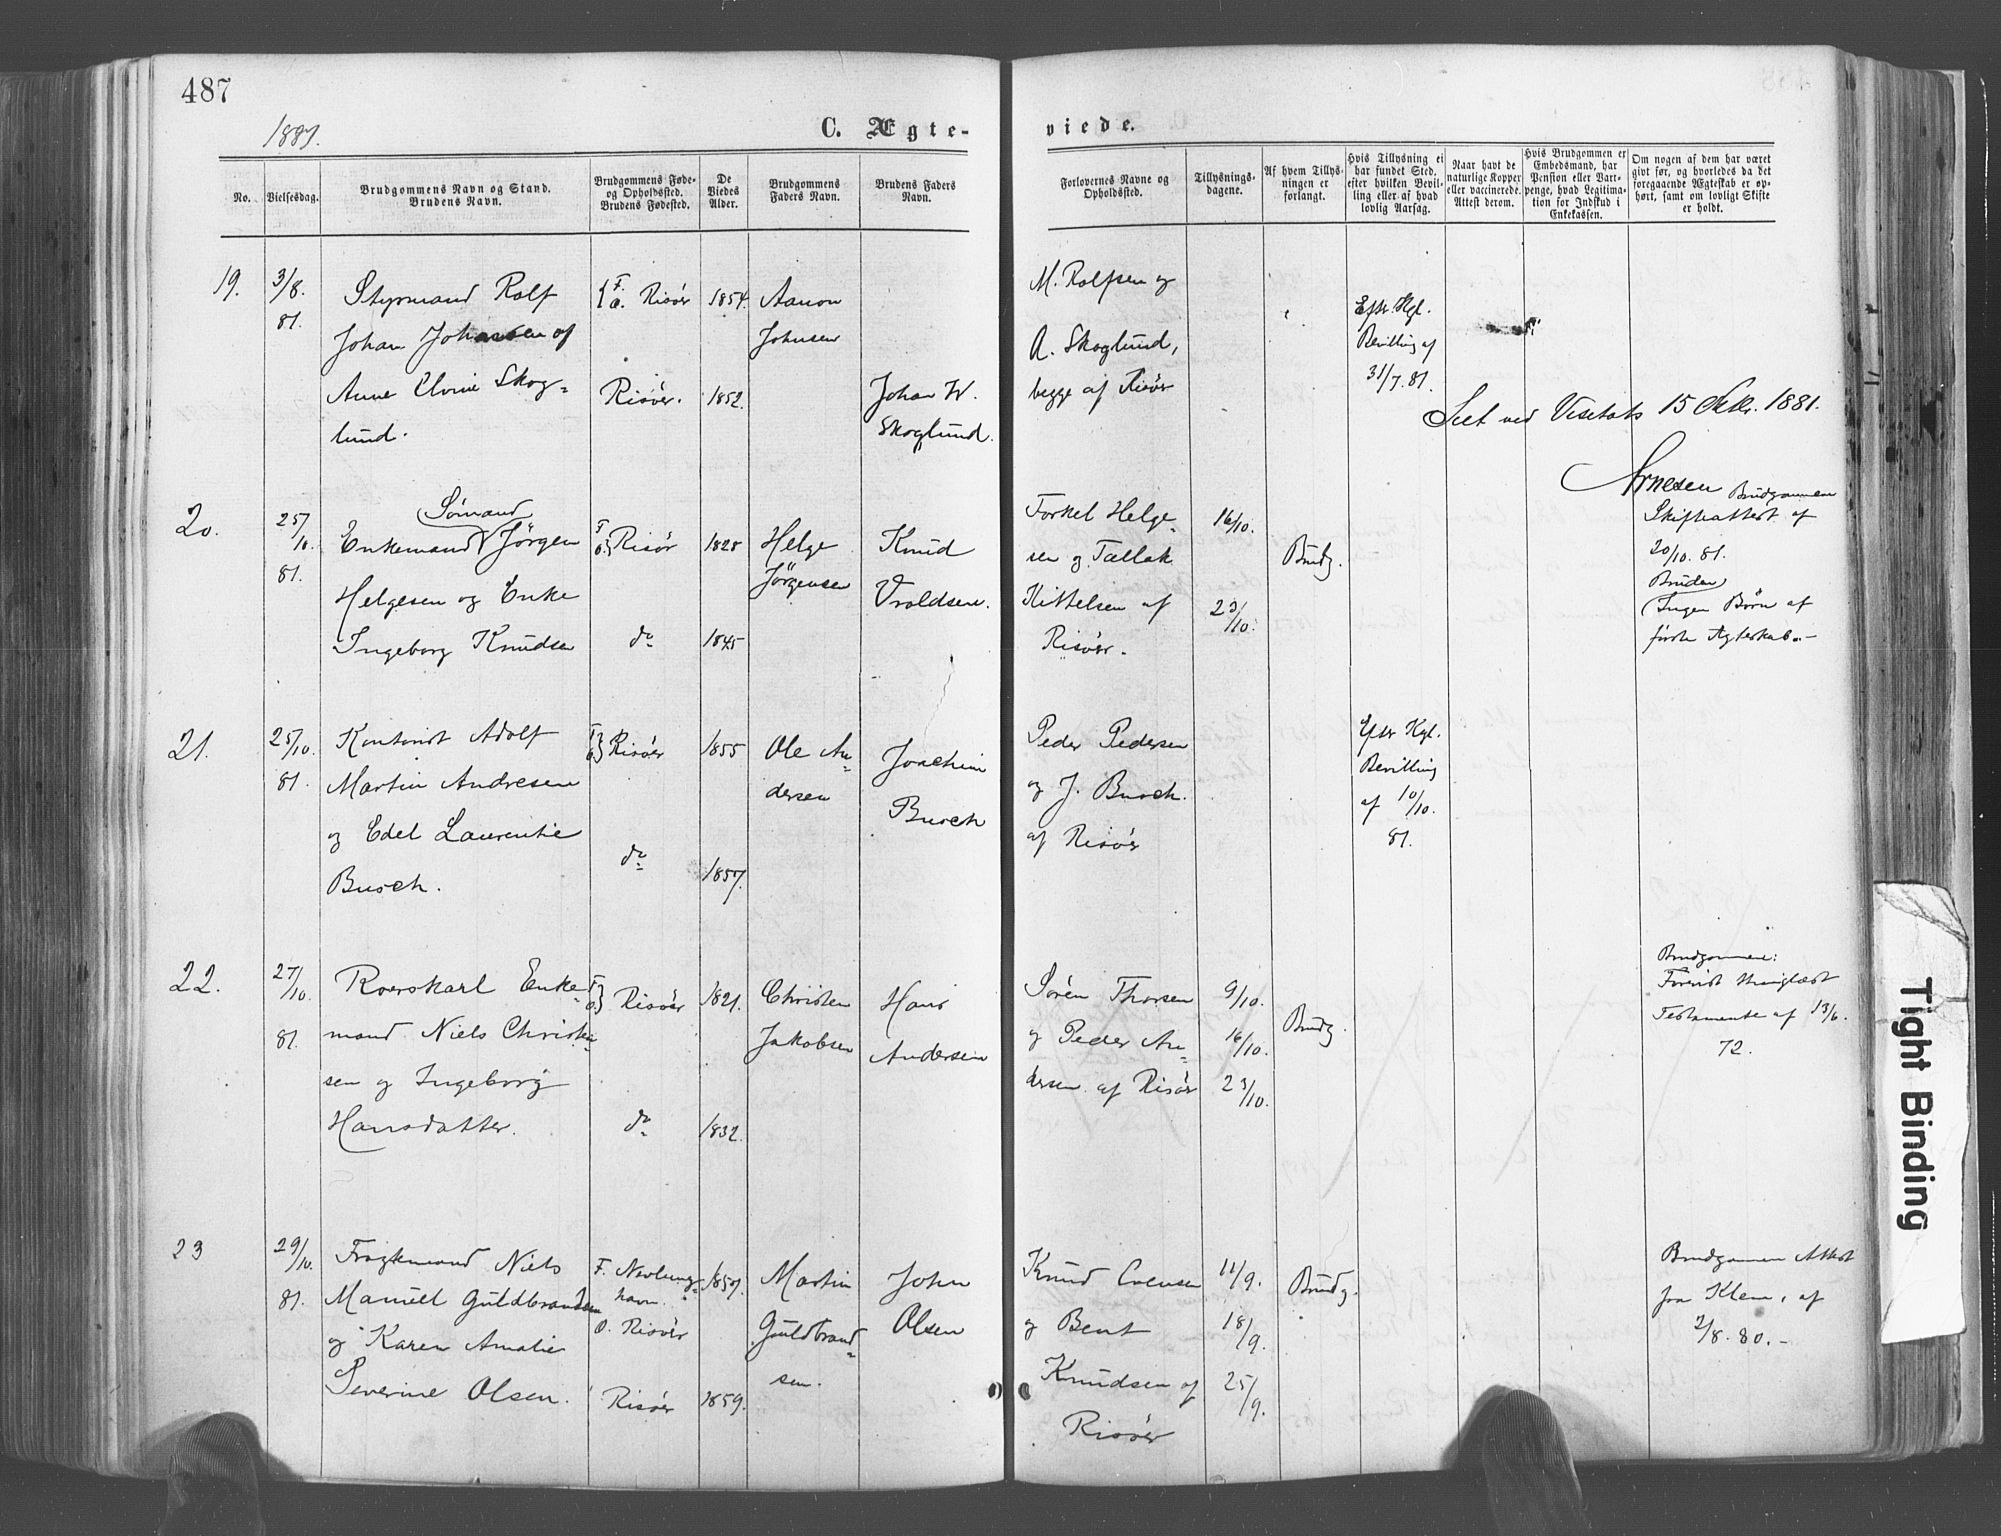 487
1881.
C. Ægte-
viede.
No.
Vielsesdag.
Brudgommens Navn og Stand.
Brudens Navn.
Brudgommens Føde-
og Opholdssted.
Brudens Fødested.
De
Viedes
Alder.
Brudgommens
Faders Navn.
Brudens Faders
Navn.
Forlovernes Navne og
Opholdssted.
Tillysnings-
dagene.
Af hvem Tillys-
ningen er
forlangt.
Hvis Tillysning ei
har fundet Sted,
efter hvilken Bevil-
ling eller af hvad
lovlig Aarsag.
Naar havt de
naturlige Kopper
eller vaccinerede.
Attest derom.
Hvis Brudgommen er
Embedsmand, har
Pension eller Vart-
penge, hvad Legitima-
tion for Indskud i
Enkekassen.
Om nogen af dem har været
givt før, og hvorledes da det
foregaaende Ægteskab er op-
hørt, samt om lovligt Skifte
er holdt.
19.
3/8.
81.
Styrmand Rolf
Johan Johansen og
Anne Elvine Skog=
lund.
F.
O. Risöer
Risöer.
1854.
1852.
Aanon
Johnsen
Johan W.
Skoglund.
M. Rolfsen og
A. Skoglund,
begge af Risöer
Efter Kgl.
Bevilling af
31/7. 81.
Seet ved Visitats 15 Oktr. 1881.
Arnesen
20.
25/10.
81.
Sömand
Enkemand Jörgen
Helgesen og Enke
Ingeborg Knudsen
F
O. Risör
do
1828
1845
Helge
Jörgensen
Knud
Vroldsen.
Torkel Helge=
sen og Tallak
Kittelsen af
Risöer.
16/10.
23/10.
Brudg.
Brudgommen
Skifteattest af
20/10. 81.
Bruden
Ingen Börn af
förste Ægteskab.-
21.
25/10.
81.
Kontorist Adolf
Martin Andresen
og Edel Laurentie
Busch.
F
O Risöer
do
1855
1857.
Ole An=
dersen
Joachim
Busch
Peder Pedersen
og J. Busch.
af Risöer
Efter Kgl.
Bevilling
af 10/10.
81.
22.
27/10.
81.
Roerskarl Enke=
mand Niels Christen=
sen og Ingeborg
Hansdatter.
F
O Risöer
do
1821.
1832.
Christen
Jakobsen
Hans
Andersen
Sören Thorsen
og Peder An=
dersen af Risöer
9/10.
16/10.
23/10.
Brudg.
Brudgommen:
Forevist thinglæst
Testamente af 13/6.
72.
23
29/10.
81.
Fragtemand Niels
Manuel Guldbrandsen
og Karen Amalie
Severine Olsen.
F. Nevlung=
havn.
O. Risöer
Risöer
1857.
1859.
Martin
Guldbrand=
sen.
John
Olsen
Knud Evensen
og Bent
Knudsen af
Risöer
11/9.
18/9.
25/9.
Brudg.
Brudgommen Attest
fra Klem, af
2/8. 80.-
Tight Binding